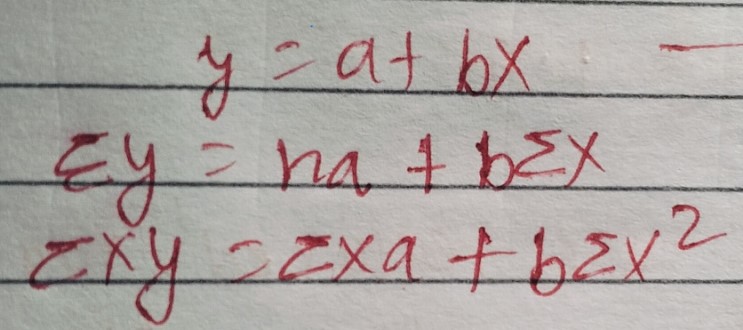 y = a + bx —
Σy = na + bΣx
Σxy = Σxa + bΣx²